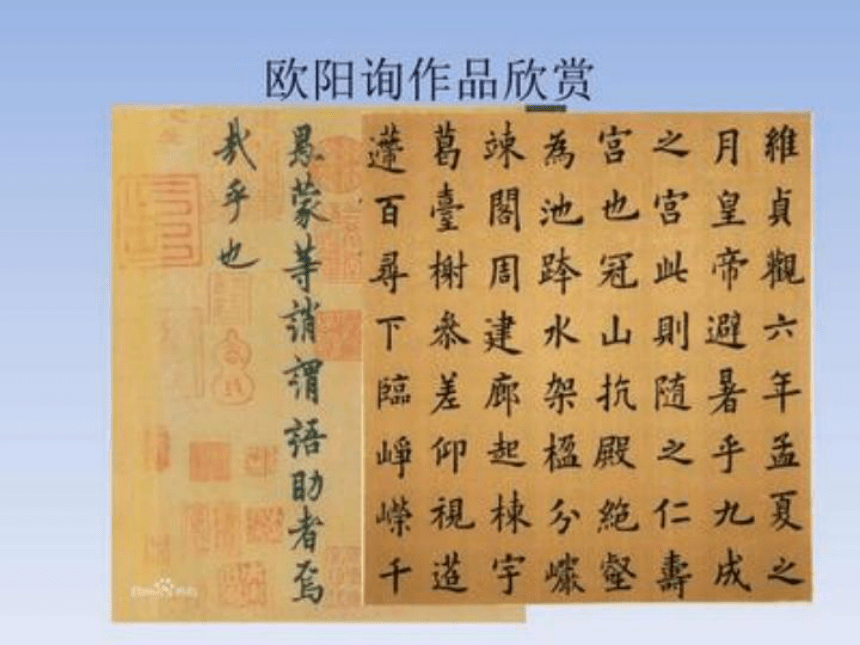 欧阳询作品欣赏
維貞觀六年孟夏之
月皇帝避暑乎九成
之宮此則随之仁壽
宮也冠山抗殿絶壑
為池跨水架楹分巖
竦閣周建廊起棟宇
葛臺榭叅差仰視迢
遰百尋下臨崢嶸千
愚蒙等誚謂語助者焉
哉乎也
Baidu百科